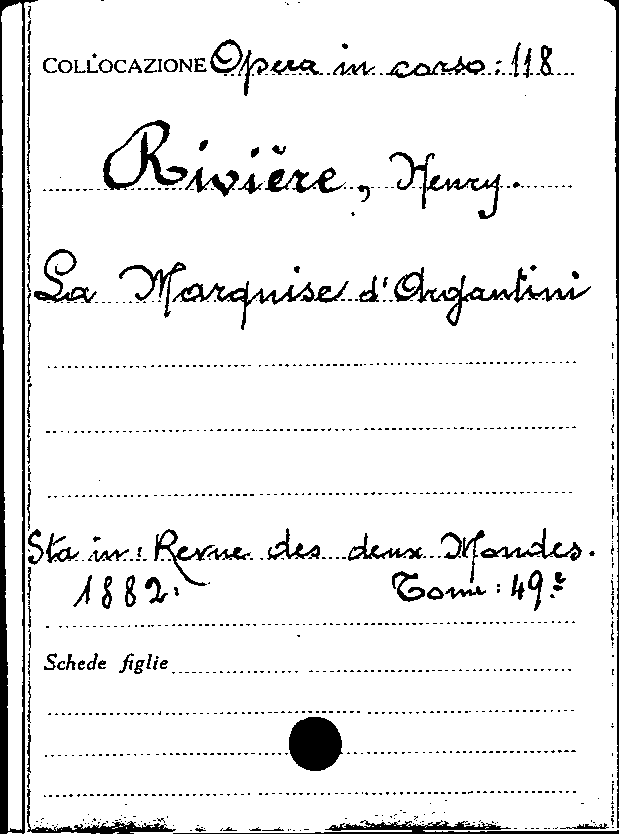 COLLOCAZIONE Opera in corso: 118
Rivière, Henry.
La Marquise d'Argantini
Sta in: Revue des deux Mondes.
1882. Tome: 49.e
Schede figlie